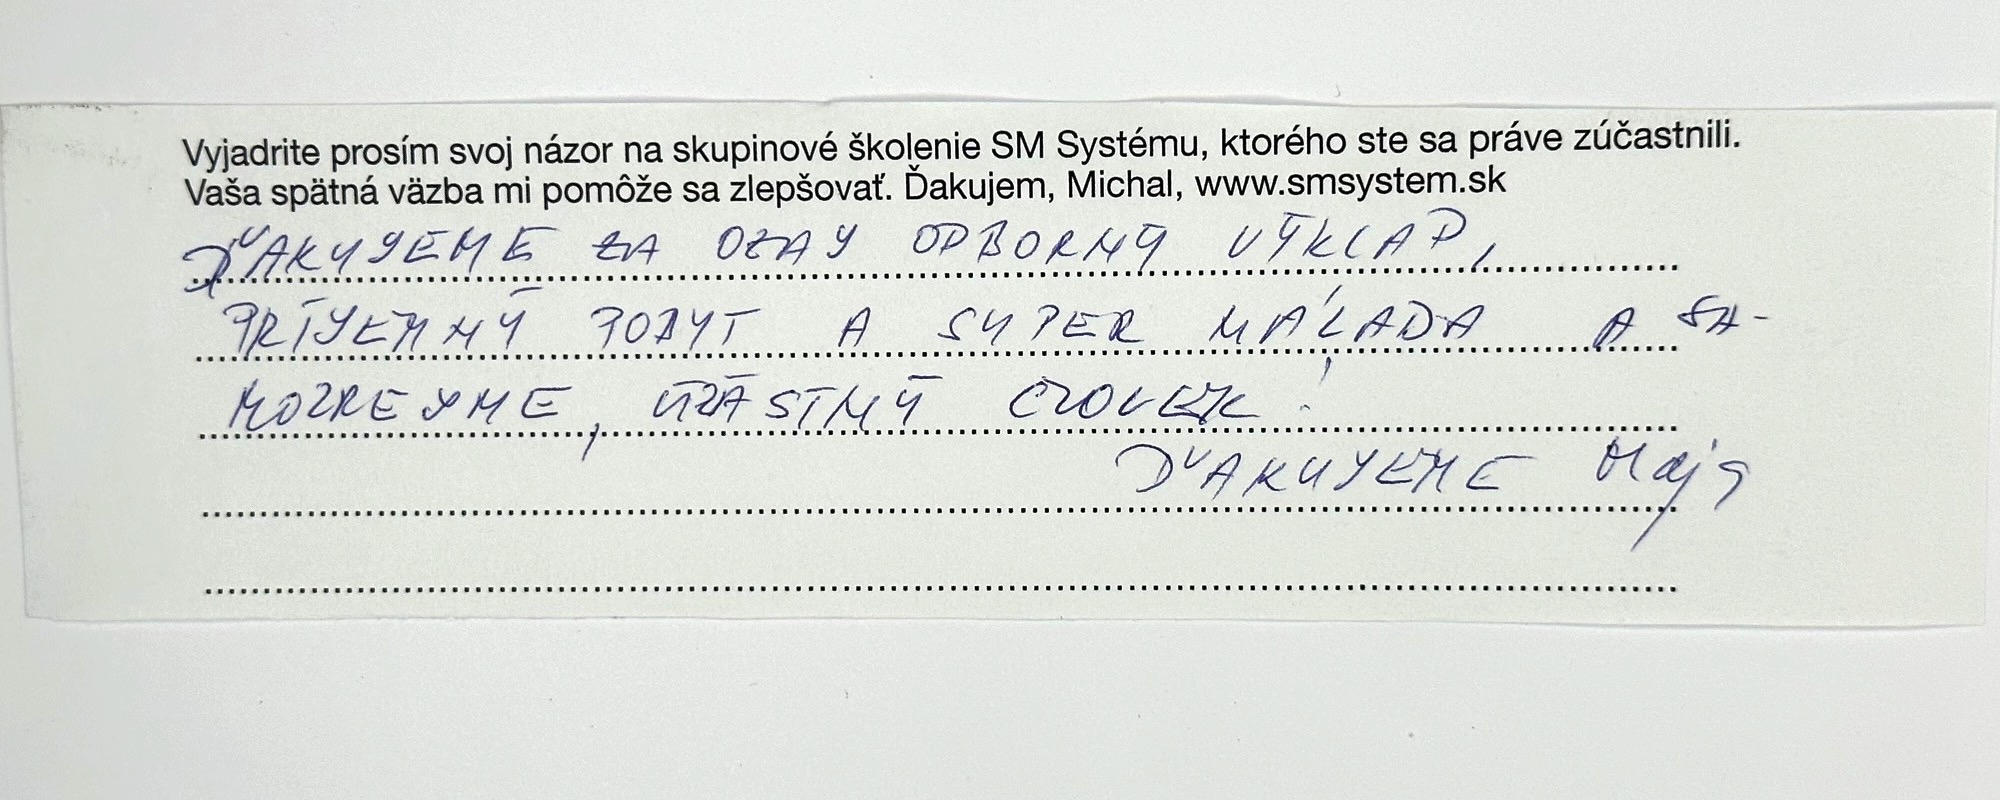 Vyjadrite prosím svoj názor na skupinové školenie SM Systému, ktorého ste sa práve zúčastnili.
Vaša spätná väzba mi pomôže sa zlepšovať. Ďakujem, Michal, www.smsystem.sk
ĎAKUJEME ZA OZAJ ODBORNÝ VÝKLAD,
PRÍJEMNÝ POBYT A SUPER NÁLADA A SA-
MOZREJME, ÚŽASTNÝ ČLOVEK!
ĎAKUJEME